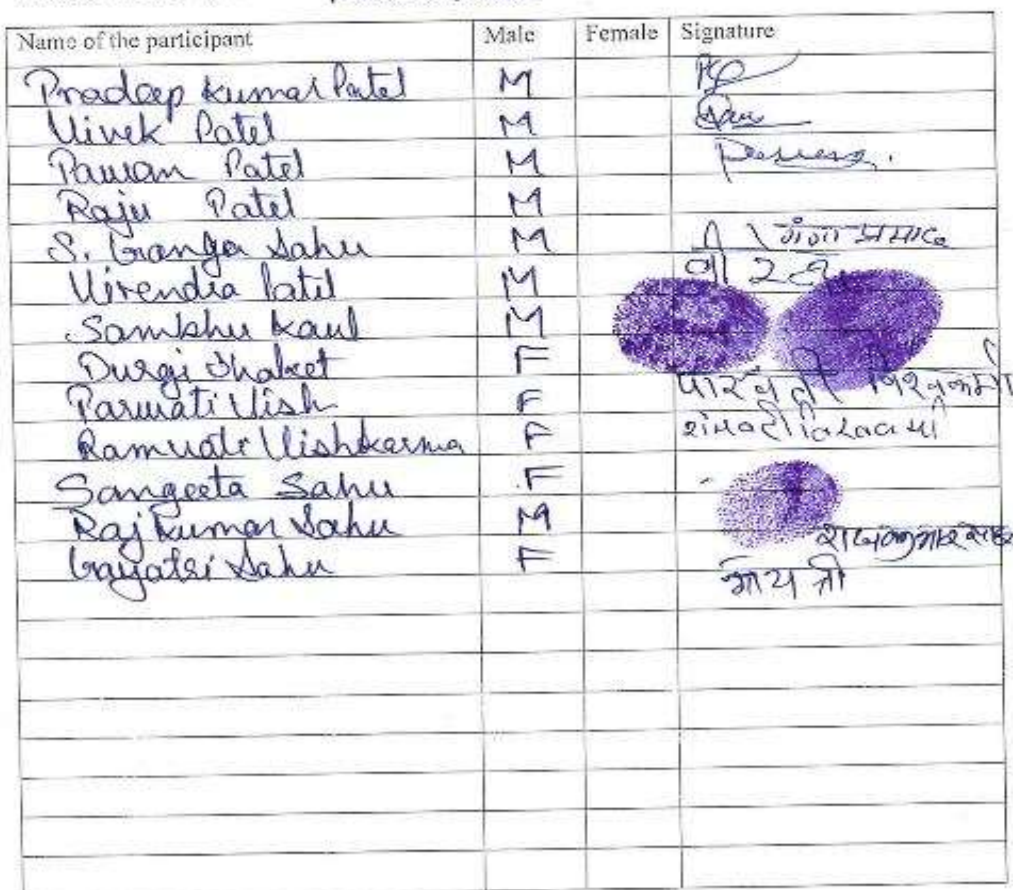 Name of the participant Male Female Signature
Pradeep Kumar Patel M
Vivek Patel M
Pawan Patel M
Raju Patel M
S. Ganga Sahu M गंगा प्रसाद
Virendra Patel M
Sambhu Kaul M
Durgi Shaket F
Parwati Vish F पारवती विश्वकर्मा
Ramvati Vishkarma F
Sangeeta Sahu F
Raj Kumar Sahu M राजकुमार साहू
Gayatri Sahu F गायत्री